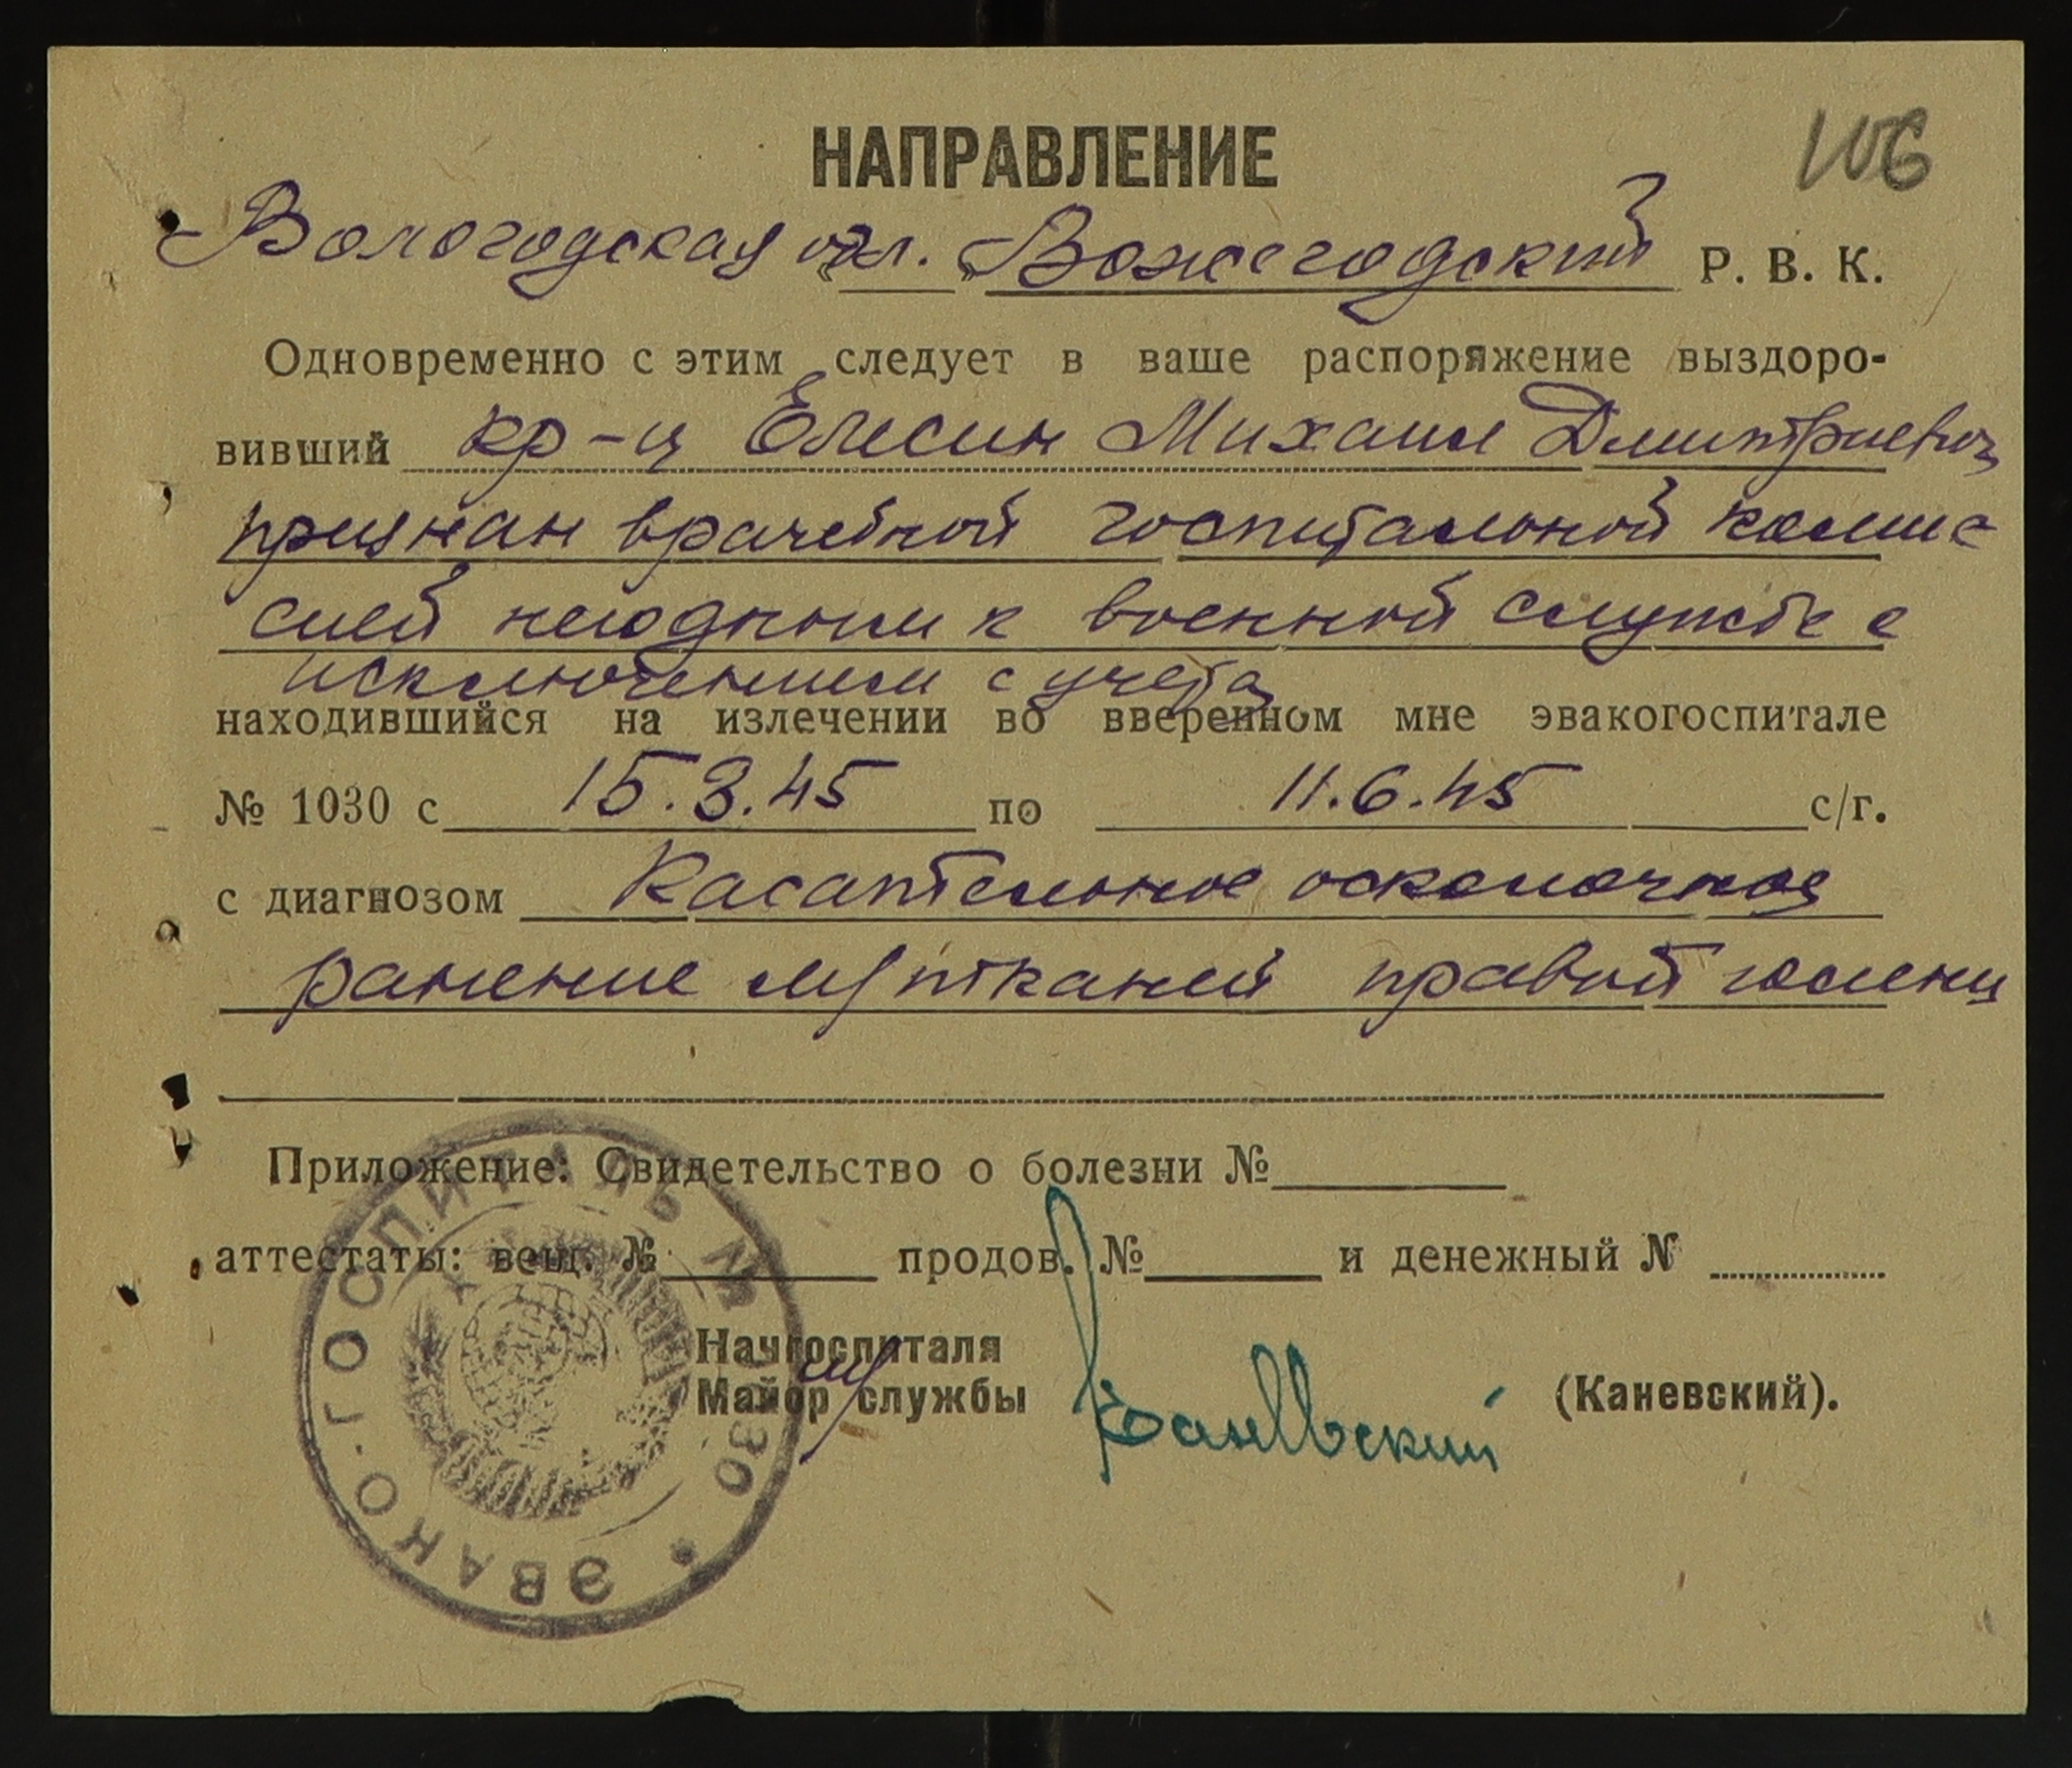 106
НАПРАВЛЕНИЕ
Вологодская обл. Вожегодский Р. В. К.
Одновременно с этим следует в ваше распоряжение выздоро-
вивший кр-ц Елесин Михаил Дмитриевич
признан врачебной госпитальной комис
сией негодным к военной службе с
исключением с учета
находившийся на излечении во вверенном мне эвакогоспитале
№ 1030 с 15.3.45 по 11.6.45 с/г.
с диагнозом Касательное осколочное
ранение м/тканей правой голени
Приложение: Свидетельство о болезни №
аттестаты: вещ. № продов. № и денежный №
Начгоспиталя
Майор м/службы Каневский (Каневский).
ЭВАКО-ГОСПИТАЛЬ № 1030